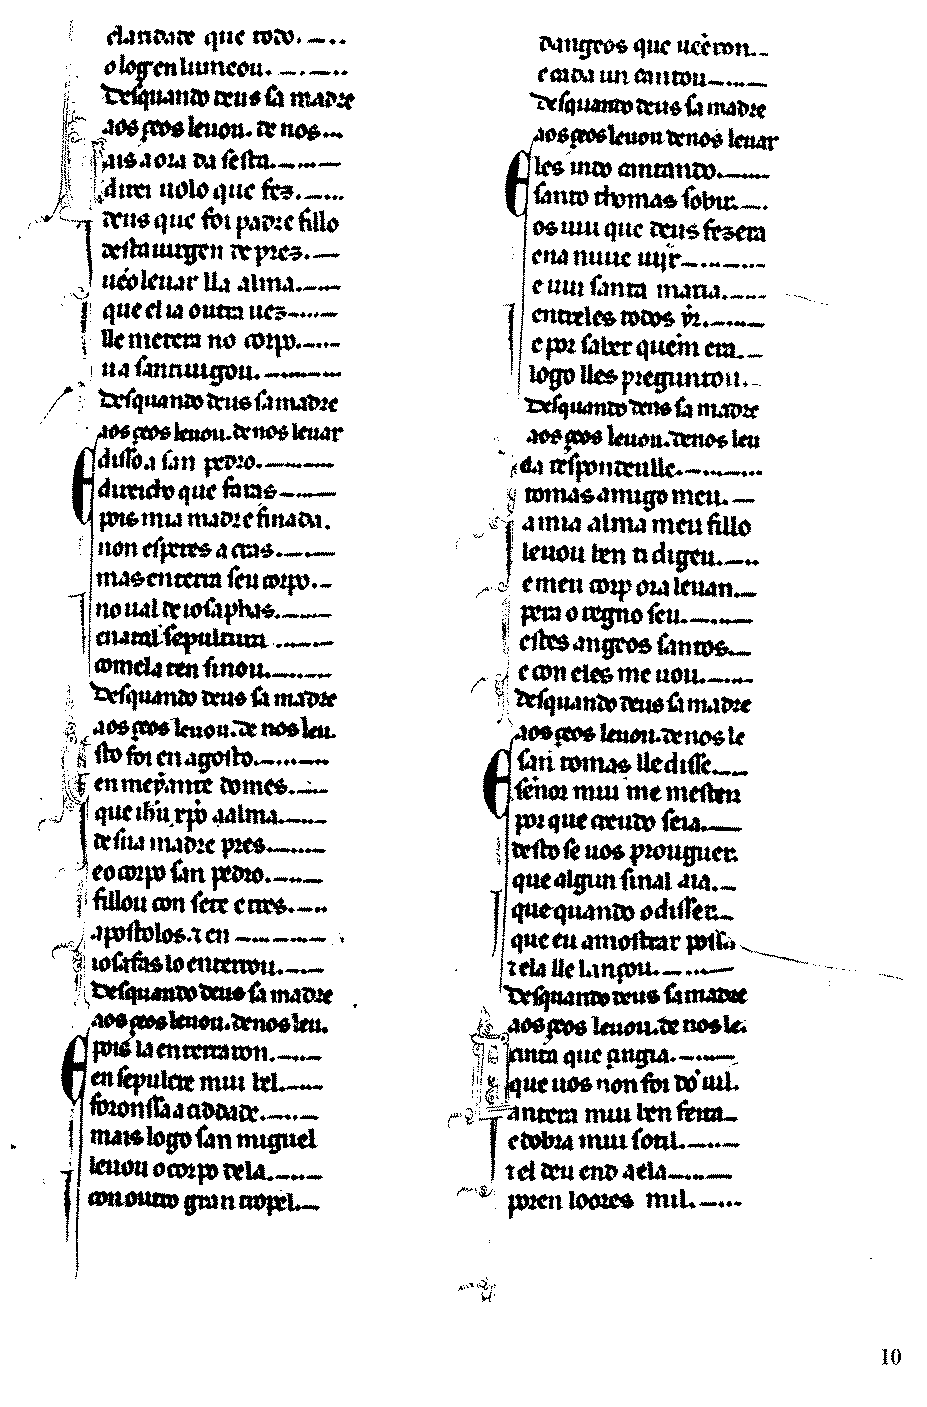 claridade que todo.
o logar enlumeou.
Des quando deus sa madre
aos çeos leuou. de nos
ais a ora da sesta.
direi uolo que fez.
deus que foi padre fillo
desta uirgen de prez.
uẽo leuar lla alma.
que el ia outra uez
lle metera no corpo.
u a santiuigou.
Des quando deus sa madre
aos çeos leuou. de nos leuar
E disso a san pedro.
direicho que faras
pois mia madre finada.
non esperes a cras.
mas enterra seu corpo.
no ual de iosaphas.
en atal sepultura
com ela ten sinou.
Des quando deus sa madre
aos çeos leuou. de nos leu.
sto foi en agosto.
en meyante do mes.
que ihũ xpõ a alma.
de sua madre pres.
e o corpo san pedro.
fillou con sete e tres.
apostolos. ⁊ en
iosafas lo enterrou.
Des quando deus sa madre
aos çeos leuou. de nos leu.
E pois la enterraron.
en sepulcre mui bel.
foronssa a cidade.
mais logo san miguel
leuou o corpo dela.
con outro gran tropel.
dangeos que uẽeron
e cada un cantou
Des quando deus sa madre
aos çeos leuou de nos leuar
E les indo cantando.
santo thomas sobir.
os uiu que deus fezera
ena nuue uĩjr
e uiu santa maria.
entreles todos yr.
e por saber quem era.
logo lles preguntou.
Des quando deus sa madre
aos çeos leuou. de nos leu
la respondeulle.
tomas amigo meu.
a mia alma meu fillo
leuou ben ti digeu.
e meu corp ora leuan.
pera o regno seu.
estes angeos santos.
e con eles me uou.
Des quando deus sa madre
aos çeos leuou. de nos le
E san tomas lle disse.
sẽnor mui me mesteu
por que creudo seia.
desto se uos prouguer.
que algun sinal aia.
que quando o disser.
que eu amostrar possa
⁊ ela lle lançou.
Des quando deus sa madre
aos çeos leuou. de nos le.
cinta que çingia.
que uos non foi do uil.
antera mui ben feita
e dobra mui sotil.
⁊ el deu end a ela
poren loores mil.
10